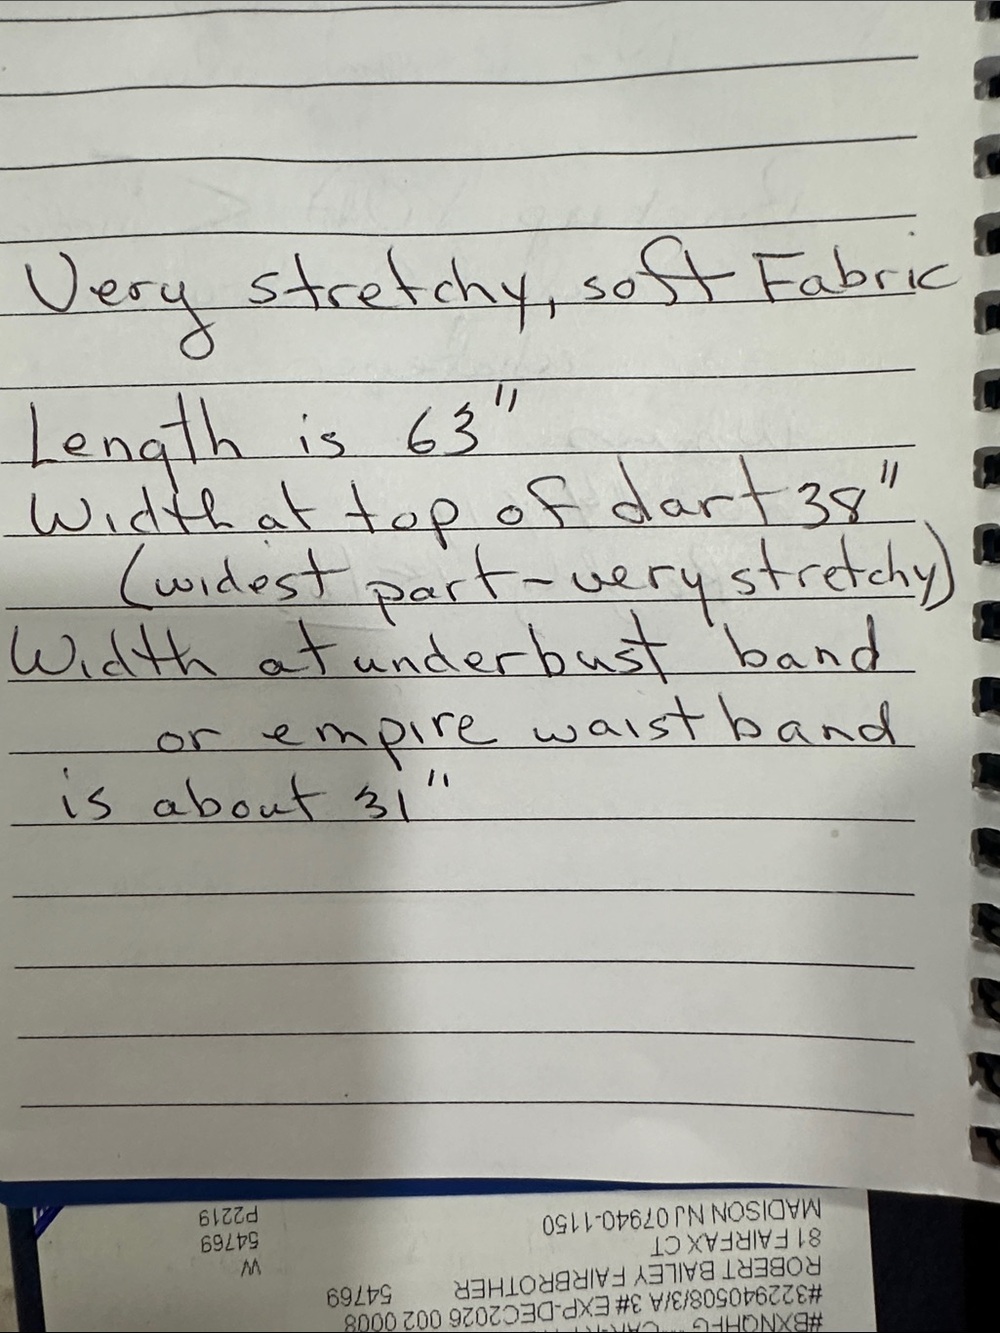 Very stretchy, soft Fabric
Length is 63"
Width at top of dart 38"
(widest part - very stretchy)
Width at underbust band
or empire waist band
is about 31"
#BXNQHFG
#322940508/3/A 3# EXP-DEC2026 002 0008
ROBERT BAILEY FAIRBROTHER 54769
81 FAIRFAX CT W
MADISON NJ 07940-1150 54769
P2219